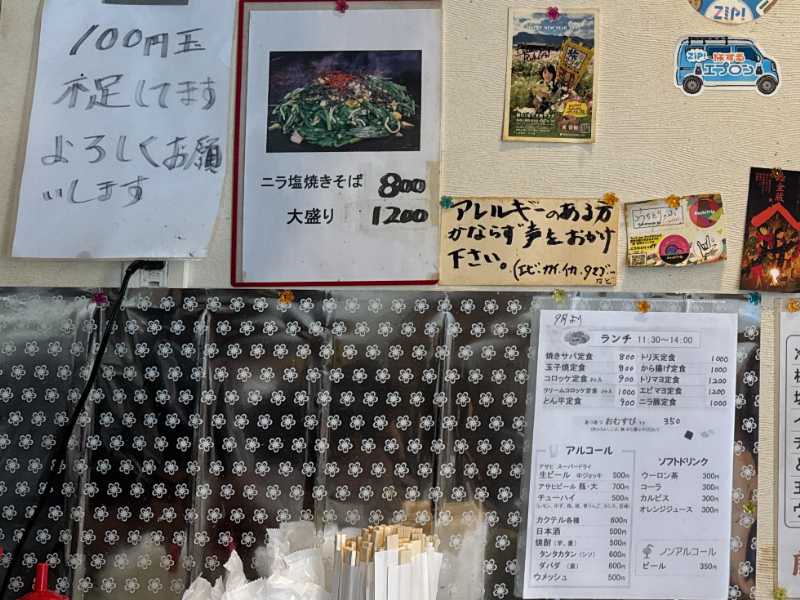 100円玉
不足してます
よろしくお願
いします
ニラ塩焼きそば 800
大盛り 1200
アレルギーのある方
かならず声をおかけ
下さい。(エビ.カイ.イカ.タマゴ—
など
ZIP!
ZIP! 旅する
エプロン
9月より
ランチ 11:30～14:00
焼きサバ定食 800
玉子焼定食 800
コロッケ定食 900
クリームコロッケ定食 1000
とん平定食 900
トリ天定食 1000
から揚げ定食 1000
トリマヨ定食 1200
エビマヨ定食 1200
ニラ豚定食 1000
おむすび 350
アルコール
アサヒ スーパードライ
生ビール 中ジョッキ 500円
アサヒビール 瓶・大 700円
チューハイ 500円
カクテル各種 600円
日本酒 500円
焼酎 (芋、麦) 500円
タンタカタン (シソ) 600円
ダバダ (栗) 600円
ウメッシュ 500円
ソフトドリンク
ウーロン茶 300円
コーラ 300円
カルピス 300円
オレンジジュース 300円
ノンアルコール
ビール 350円